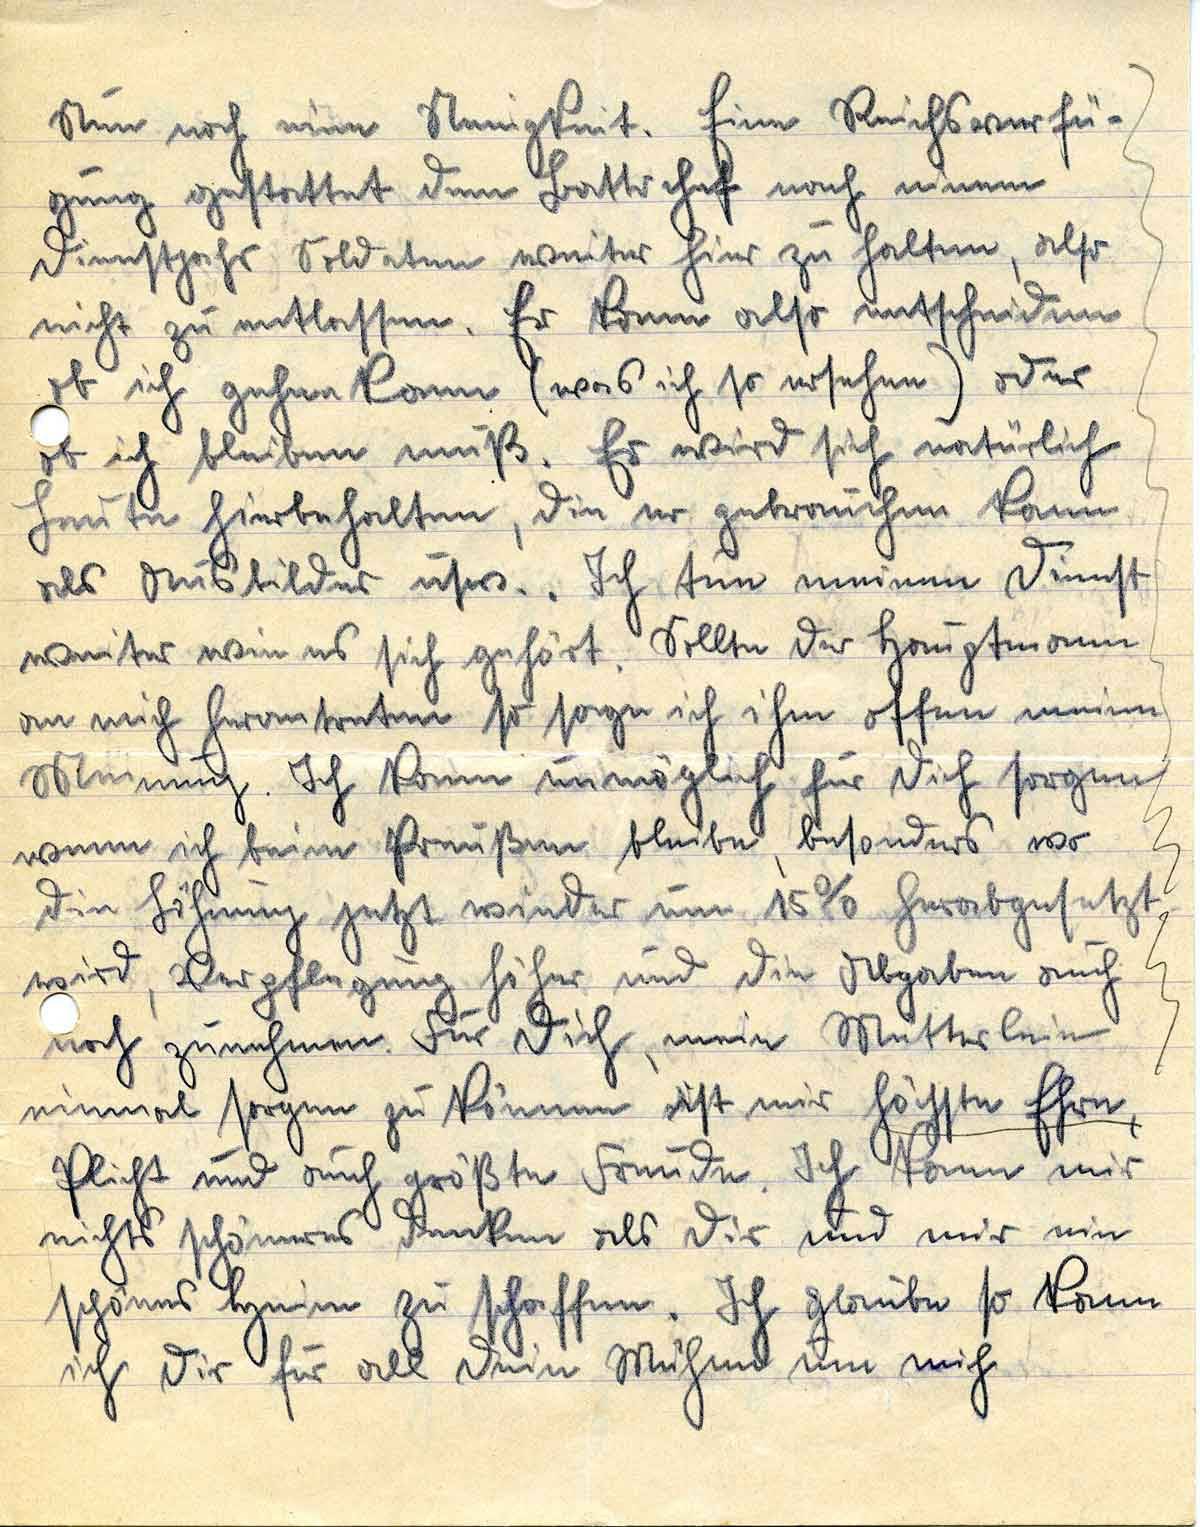 Nun noch eine Neuigkeit. Eine Reichsverfü-
gung gestattet dem Battrchef nach einem
Dienstjahr Soldaten weiter hier zu halten, also
nicht zu entlassen. Er kann also entscheiden
ob ich gehen kann (was ich so ersehen) oder
ob ich bleiben muß. Er wird sich natürlich
Leute hierbehalten, die er gebrauchen kann
als Ausbilder usw.. Ich tue meinen Dienst
weiter wie es sich gehört. Sollte der Hauptmann
an mich herantreten so sage ich ihm offen meine
Meinung. Ich kann unmöglich für Dich sorgen
wenn ich beim Preußen bleibe, besonders wo
die Löhnung jetzt wieder um 15% herabgesetzt
wird, Verpflegung höher und die Abgaben auch
noch zunehmen. Für Dich, mein Mutterlein
einmal sorgen zu können ist mir höchste Ehre,
Plicht und auch größte Freude. Ich kann mir
nichts schöneres denken als Dir und mir ein
schönes Heim zu schaffen. Ich glaube so kann
ich Dir für all Dein Mühen um mich